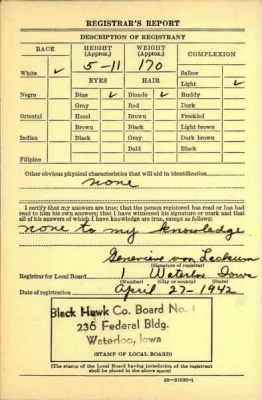 REGISTRAR'S REPORT
DESCRIPTION OF REGISTRANT
RACE HEIGHT (Approx.) WEIGHT (Approx.) COMPLEXION
5-11 170 Sallow
White ✓ EYES HAIR Light ✓
Negro Blue ✓ Blonde ✓ Ruddy
Gray Red Dark
Oriental Hazel Brown Freckled
Brown Black Light brown
Indian Black Gray Dark brown
Bald Black
Filipino
Other obvious physical characteristics that will aid in identification
none
I certify that my answers are true; that the person registered has read or has had
read to him his own answers; that I have witnessed his signature or mark and that
all of his answers of which I have knowledge are true, except as follows:
none to my knowledge
Genevieve von Lackum
(Signature of registrar)
Registrar for Local Board 1 Waterloo Iowa
(Number) (City or county) (State)
Date of registration April 27-1942
Black Hawk Co. Board No. 1
236 Federal Bldg.
Waterloo, Iowa
(STAMP OF LOCAL BOARD)
(The stamp of the Local Board having jurisdiction of the registrant
shall be placed in the above space)